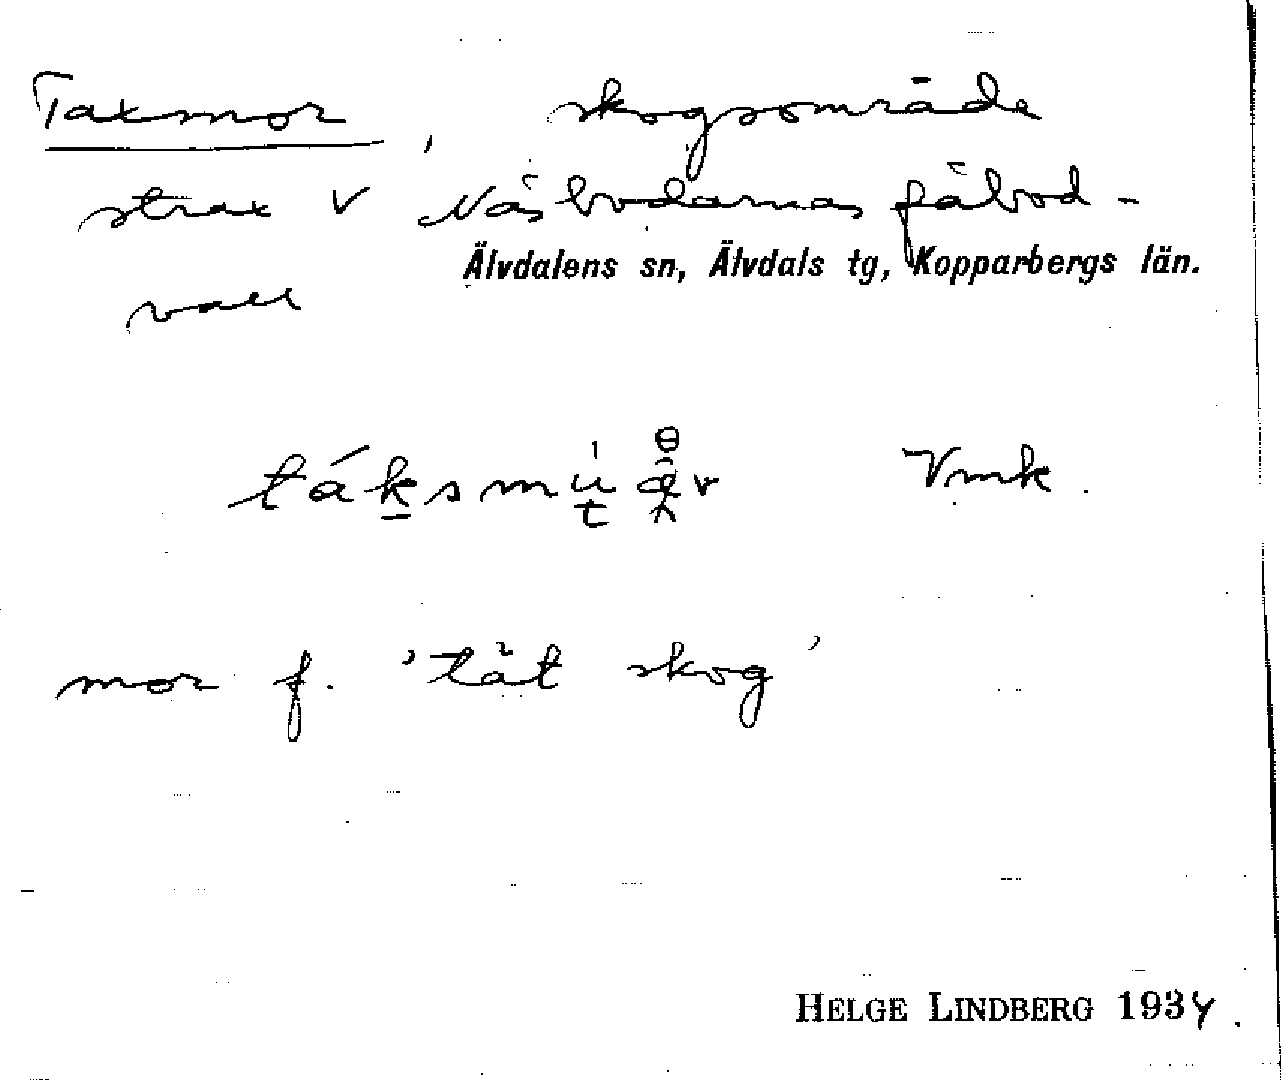 Taxmor, skogsområde
strax v Näsbodarnas fäbod-
Älvdalens sn, Älvdals tg, Kopparbergs län.
vall
Vmk.
mor f. 'tät skog'
HELGE LINDBERG 1934.